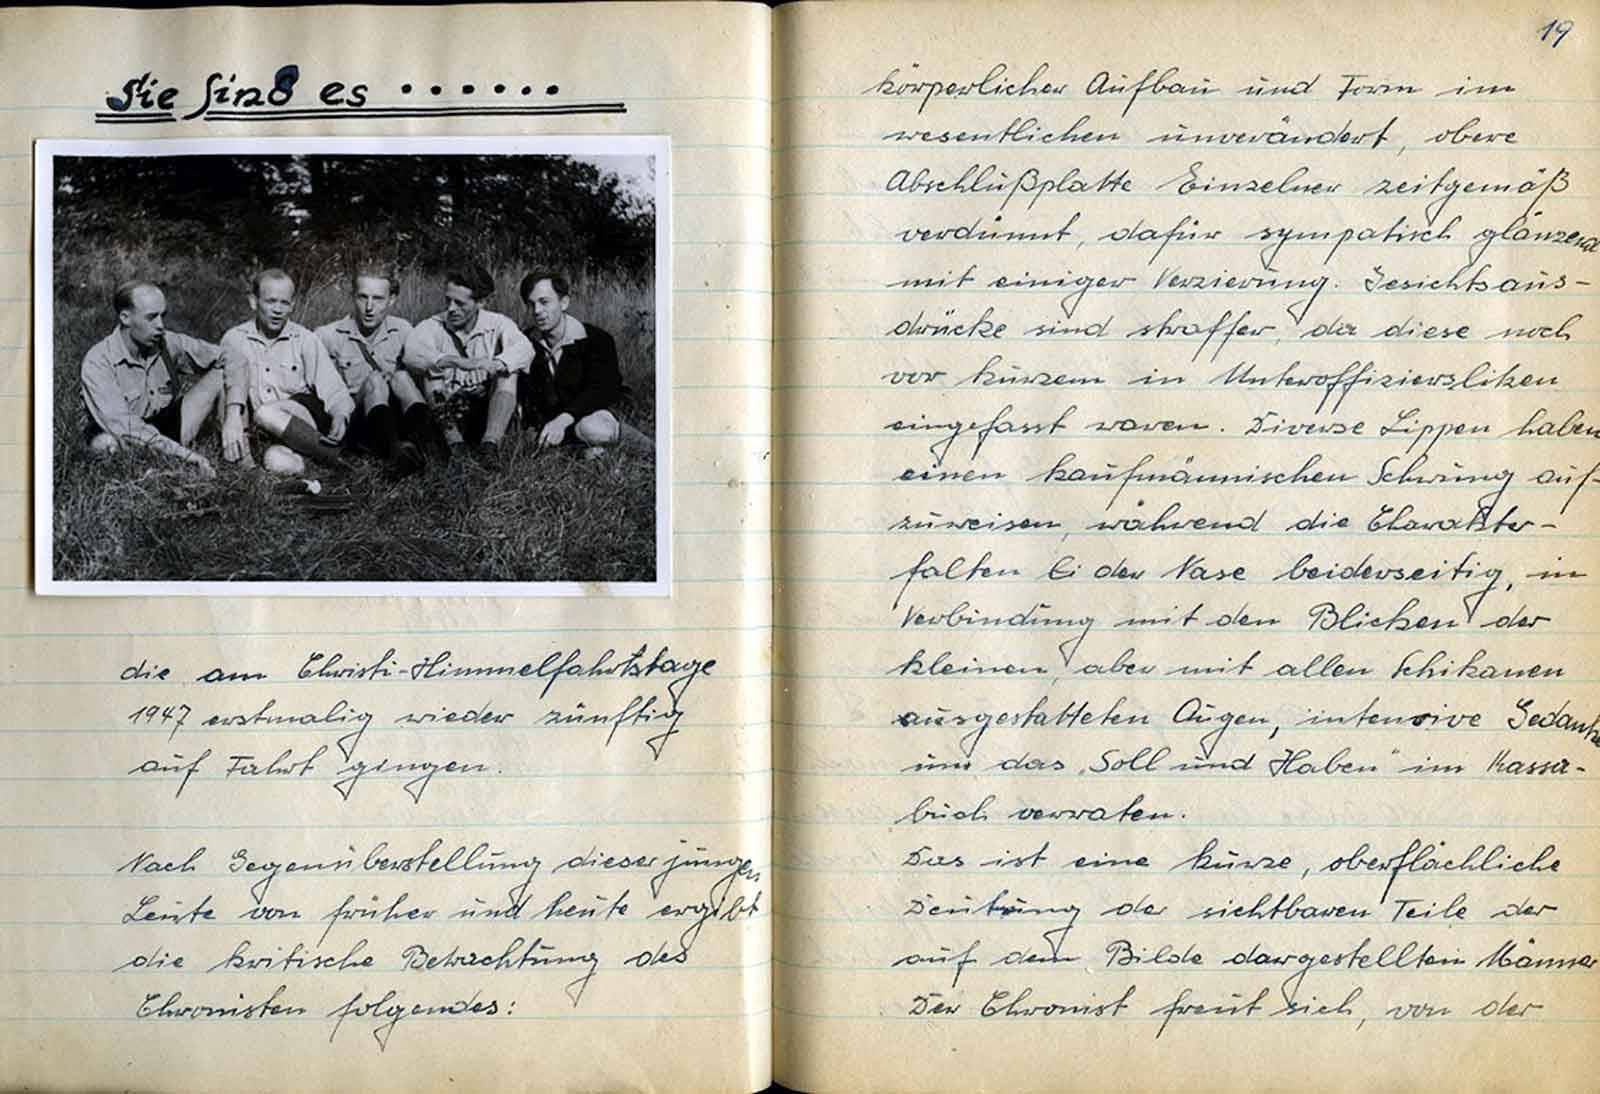 Sie sind es ......
die am Christi-Himmelfahrtstage
1947 erstmalig wieder zünftig
auf Fahrt gingen.
Nach Gegenüberstellung dieser jungen
Leute von früher und heute ergibt
die kritische Betrachtung des
Chronisten folgendes:
19
körperlicher Aufbau und Form im
wesentlichen unverändert, obere
Abschlußplatte Einzelner zeitgemäß
verdünnt, dafür sympatisch glänzend
mit einiger Verzierung. Gesichtsaus-
drücke sind straffer, da diese noch
vor kurzem in Unteroffizierslitzen
eingefasst waren. Diverse Lippen haben
einen kaufmännischen Schwung auf-
zuweisen, während die Charakter-
falten bei der Nase beiderseitig, in
Verbindung mit den Blicken der
kleinen, aber mit allen Schikanen
ausgestatteten Augen, intensive Gedanke
um das "Soll und Haben" im Kassa-
buch verraten.
Das ist eine kurze, oberflächliche
Deutung der sichtbaren Teile der
auf dem Bilde dargestellten Männer
Der Chronist freut sich, von der